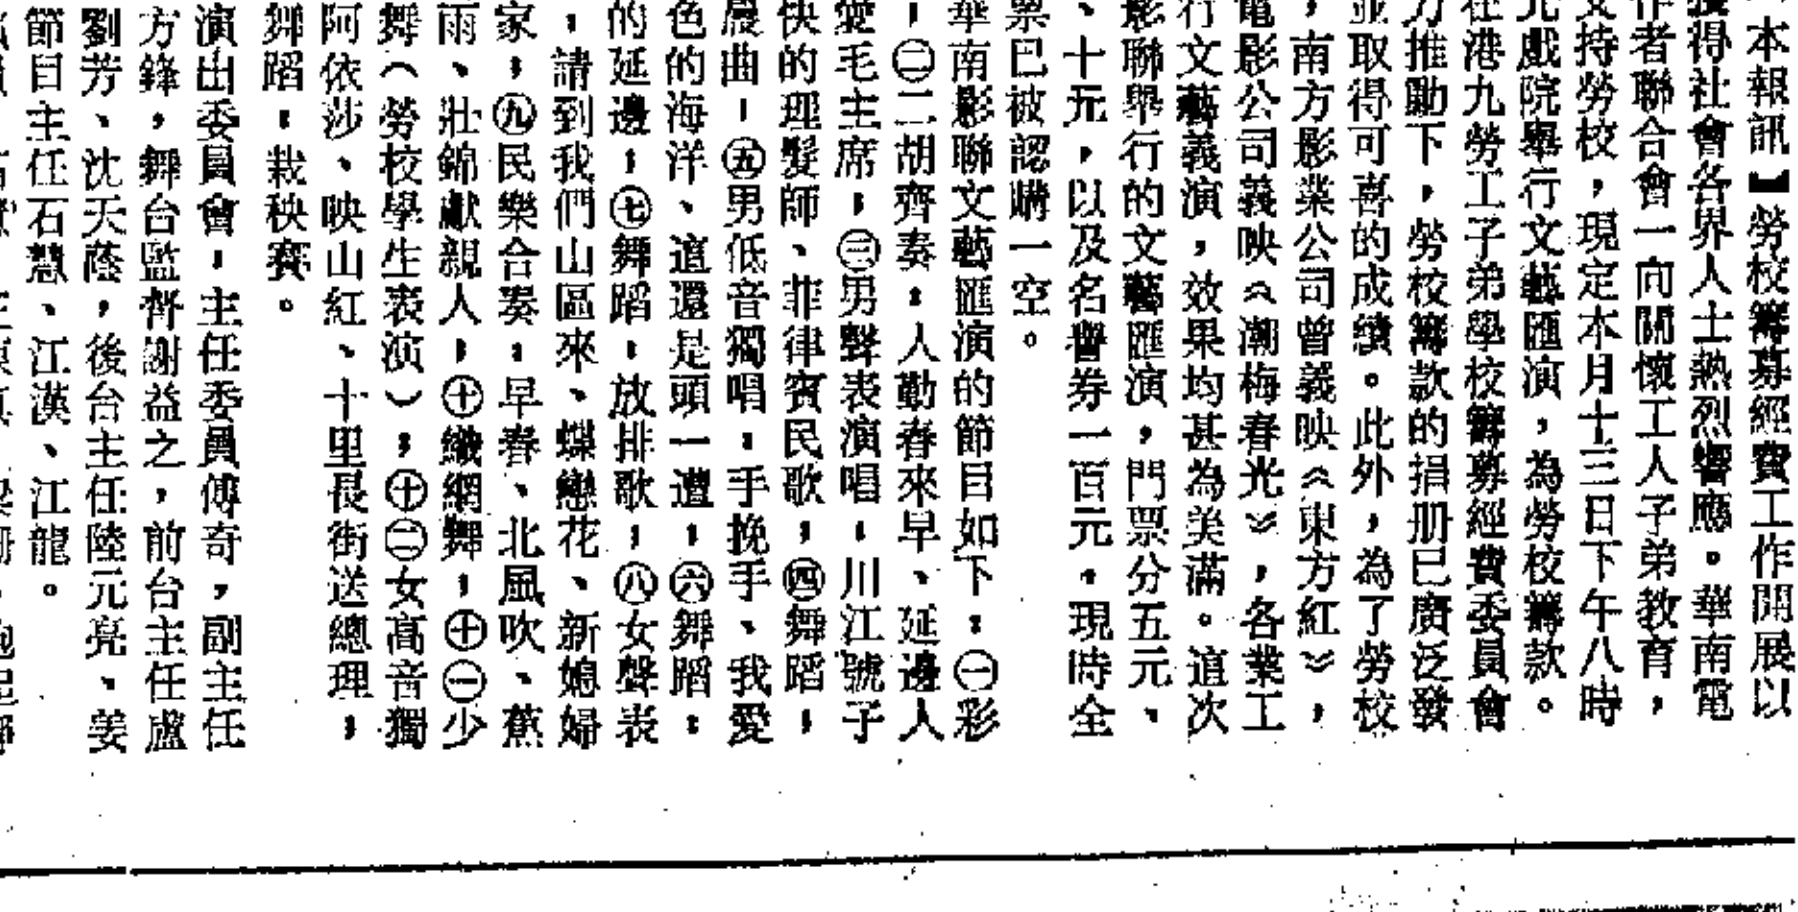 本報訊】勞校籌募經費工作開展以
獲得社會各界人士熱烈響應。華南電
作者聯合會一向關懷工人子弟教育，
支持勞校，現定本月十三日下午八時
元戲院舉行文藝匯演，為勞校籌款。
在港九勞工子弟學校籌募經費委員會
力推動下，勞校籌款的捐册已廣泛發
並取得可喜的成績。此外，為了勞校
，南方影業公司曾義映《東方紅》，
電影公司義映《潮梅春光》，各業工
行文藝義演，效果均甚為美滿。這次
影聯舉行的文藝匯演，門票分五元、
、十元，以及名譽券一百元。現時全
票已被認購一空。
華南影聯文藝匯演的節目如下：㊀彩
，㊁二胡齊奏：人勤春來早、延邊人
愛毛主席，㊂男聲表演唱：川江號子
快的理髮師、菲律賓民歌，㊃舞蹈，
晨曲，㊄男低音獨唱：手挽手、我愛
色的海洋、這還是頭一遭，㊅舞蹈：
的延邊，㊆舞蹈：放排歌，㊇女聲表
：請到我們山區來、蝶戀花、新媳婦
家，㊈民樂合奏：早春、北風吹、蕉
雨、壯錦獻親人，㊉織網舞，(十一)少
舞（勞校學生表演），(十二)女高音獨
阿依莎、映山紅、十里長街送總理，
舞蹈：栽秧賽。
演出委員會：主任委員傅奇，副主任
方鋒，舞台監督謝益之，前台主任盧
劉芳、沈天蔭，後台主任陸元亮、姜
節目主任石慧、江漢、江龍。